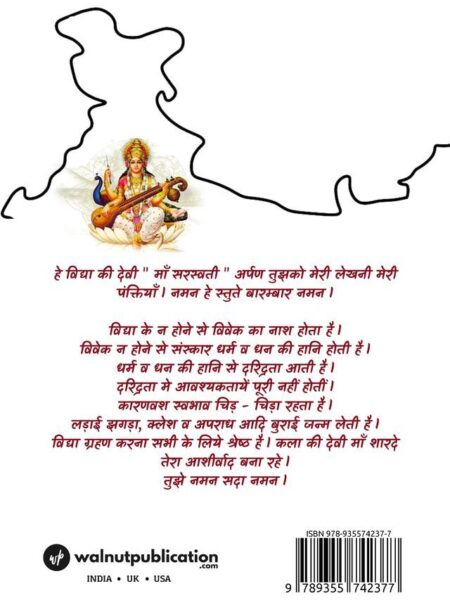 हे विद्या की देवी " माँ सरस्वती " अर्पण तुझको मेरी लेखनी मेरी
पंक्तियाँ । नमन हे स्तुते बारम्बार नमन ।
विद्या के न होने से विवेक का नाश होता है ।
विवेक न होने से संस्कार धर्म व धन की हानि होती है ।
धर्म व धन की हानि से दरिद्रता आती है ।
दरिद्रता मे आवश्यकतायें पूरी नहीं होतीं ।
कारणवश स्वभाव चिड़ - चिड़ा रहता है ।
लड़ाई झगड़ा, क्लेश व अपराध आदि बुराई जन्म लेती है ।
विद्या ग्रहण करना सभी के लिये श्रेष्ठ है । कला की देवी माँ शारदे
तेरा आशीर्वाद बना रहे ।
तुझे नमन सदा नमन ।
wp walnutpublication
.com
INDIA • UK • USA
ISBN 978-935574237-7
9 789355 742377